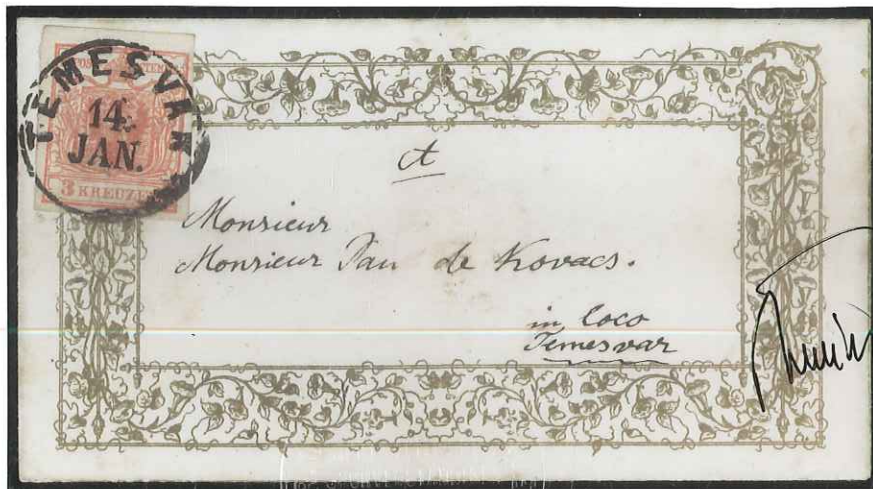 TEMESVAR
14.
JAN.
3 KREUZER
A
Monsieur
Monsieur Pau de Kovacs.
in loco
Temesvar